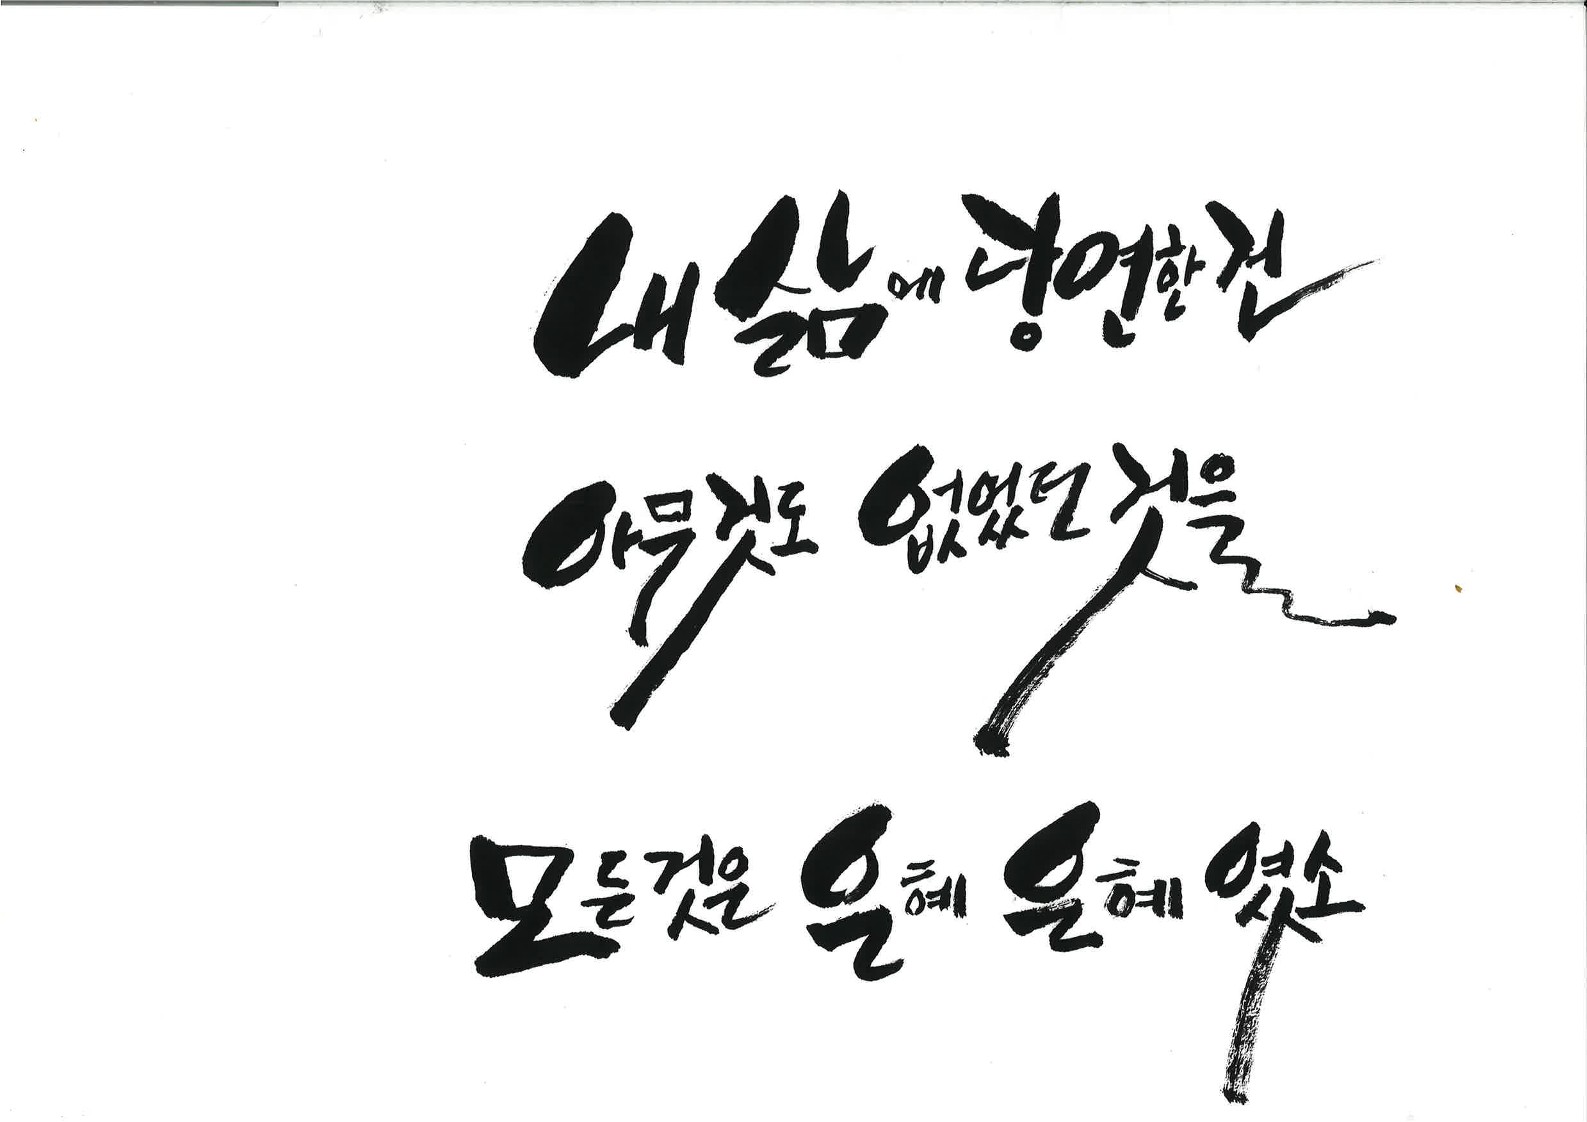 내 삶에 당연한 건
아무것도 없었던 것을
모든것은 은혜 은혜 였소